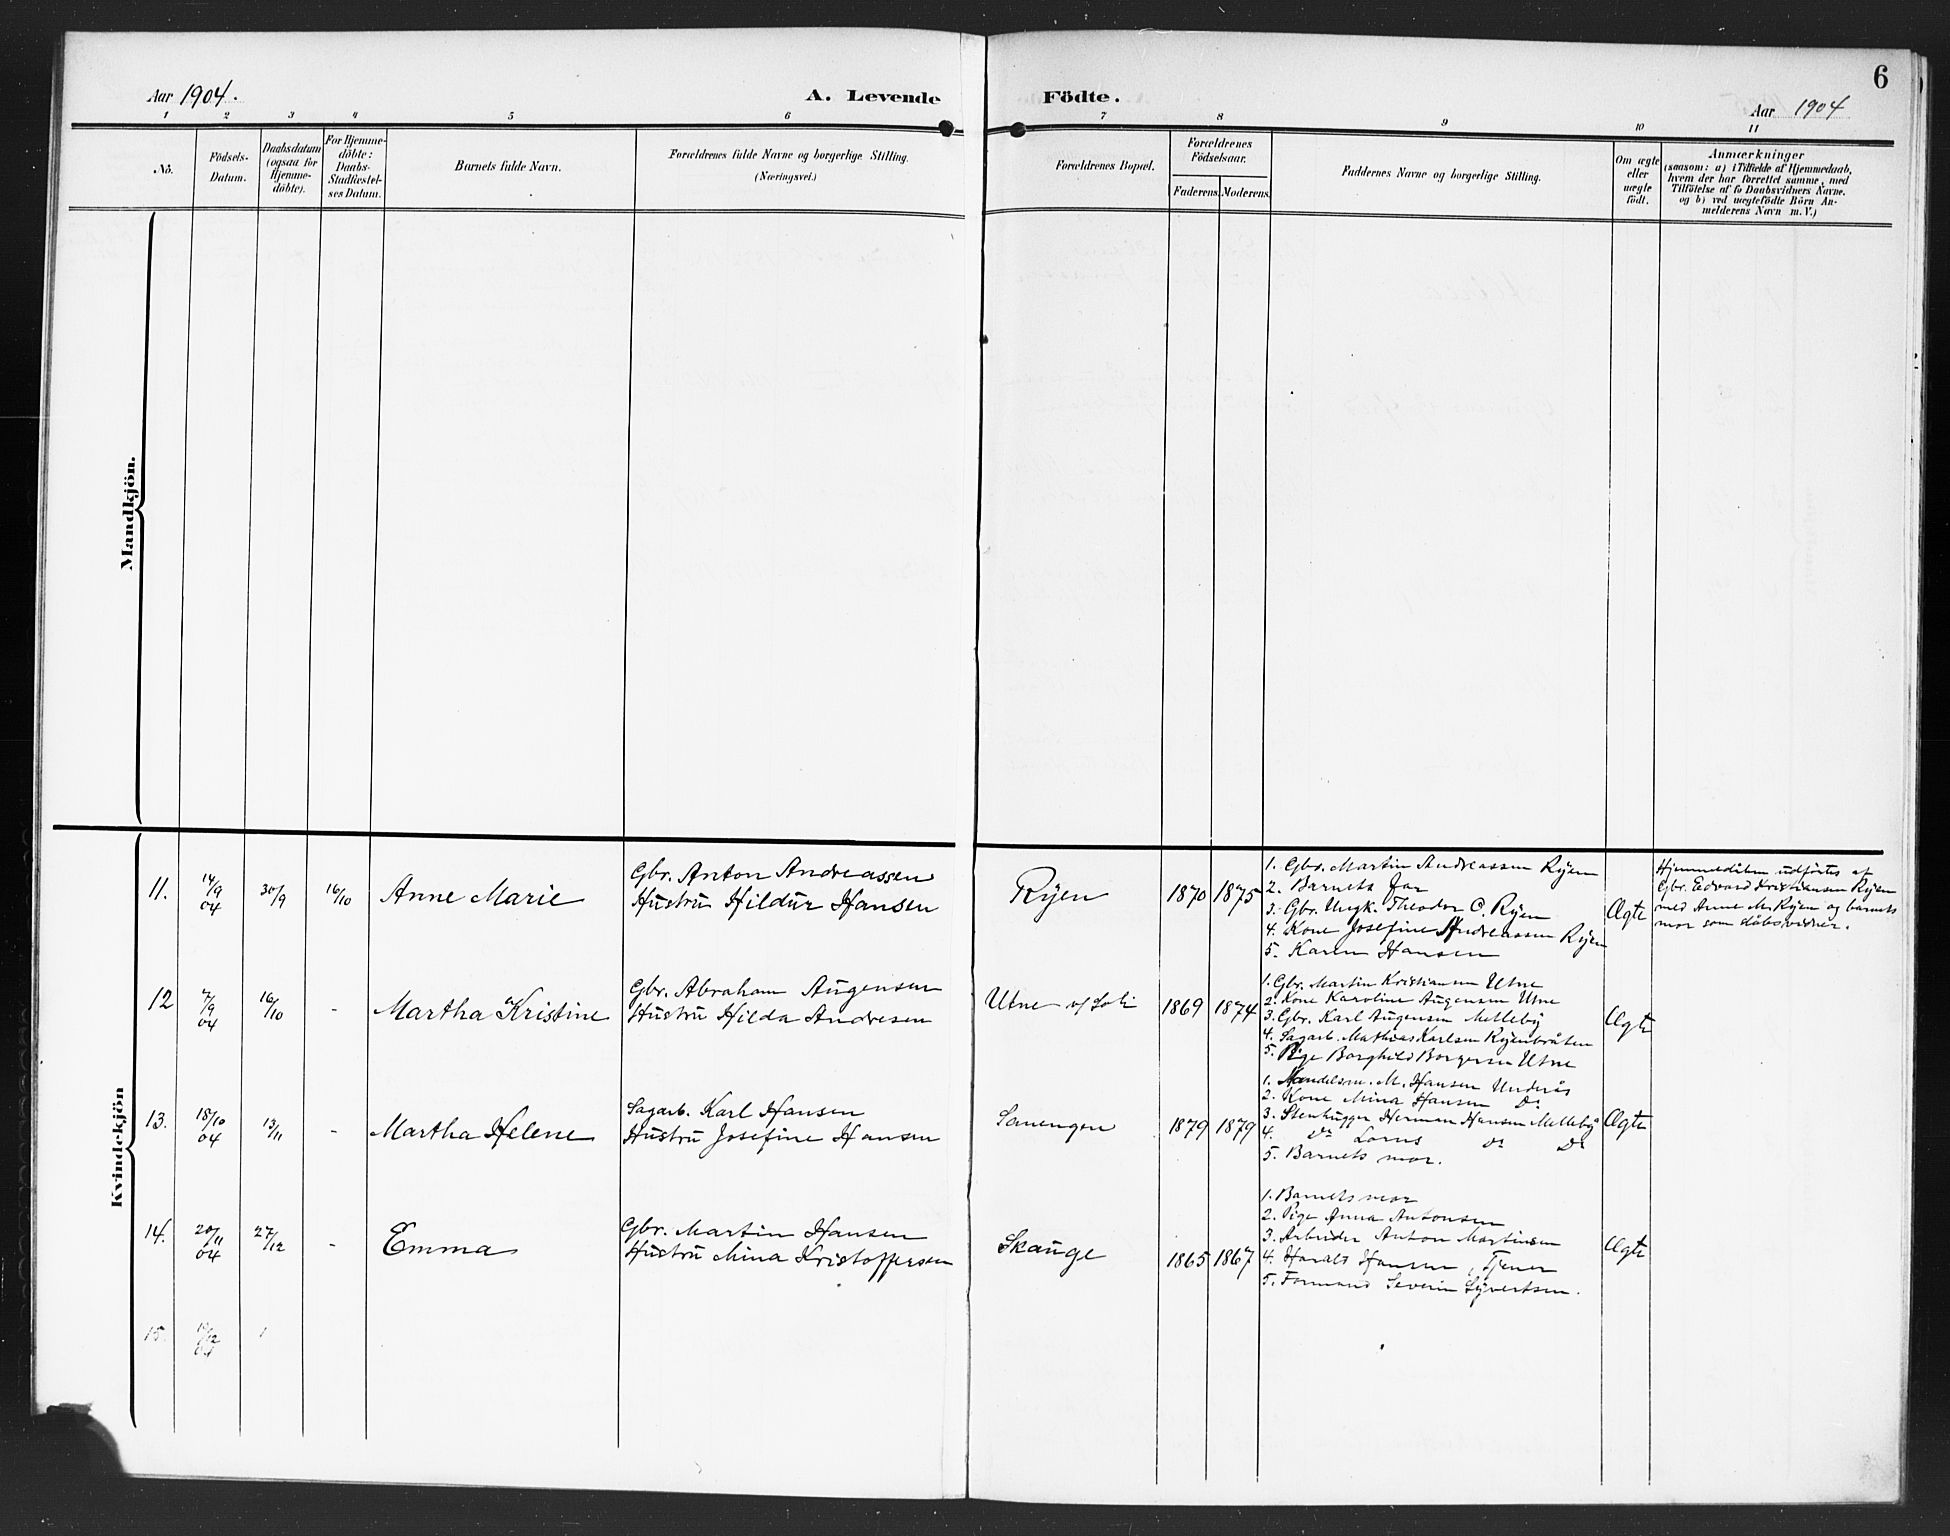 6
Aar 1904.
A. Levende
Födte.
Aar 1904
1 2 3 4 5 6 7 8 9 10 11
No.
Födsels-
Datum.
Daabsdatum
(ogsaa for
Hjemme-
döbte).
For Hjemme-
döbte:
Daabs-
Stadfæstel-
ses Datum.
Barnets fulde Navn.
Forældrenes fulde Navne og borgerlige Stilling.
(Næringsvei.)
Forældrenes Bopæl.
Forældrenes
Födselsaar.
Faderens. Moderens.
Faddernes Navne og borgerlige Stilling.
Om ægte
eller
uægte
födt.
Anmærkninger
(saasom: a) i Tilfælde af Hjemmedaab,
hvem der har forrettet samme, med
Tilföielse af to Daabsvidners Navne.
og b) ved uægtefödte Börn An-
melderens Navn m. V.)
Mandkjön.
Kvindekjön
11.
14/9
04
30/9
16/10
Anne Marie
Gbr. Anton Andreassen
Hustru Hildur Hansen
Ryen
1870 1875
1. Gbr. Martin Andreassen Ryen
2. Barnets far
3. Gbr. Ungk. Theodor O. Ryen
4. Kone Josefine Andreassen Ryen
5. Karen Hansen
Ægte
Hjemmedåben udførtes af
Gbr. Edvard Kristiansen Ryen
med Anne M. Ryen og barnets
mor som dåbsvidner.
12
7/9
04
16/10
-
Martha Kristine
Gbr. Abraham Augensen
Hustru Hilda Andresen
Utne
1869 1874
1. Gbr. Martin Kristiansen Utne
2. Kone Karoline Augensen Utne
3. Gbr. Karl Augensen Melleby
4. Sagarb. Mathias Karlsen Ryenbråten
5. Pige Borghild Borgersen Utne
Ægte
13.
18/10
04
13/11
-
Martha Helene
Sagarb. Karl Hansen
Hustru Josefine Hansen
Sanengen
1879 1879
1. Handelsm. M. Hansen Underås
2. Kone Mina Hansen Do
3. Stenhugger Herman Hansen Melleby
4. do Lorns do Do
5. Barnets mor.
Ægte
14.
20/11
04
27/12
-
Emma
Gbr. Martin Hansen
Hustru Mina Kristoffersen
Skauge
1865 1867
1. Barnets mor
2. Pige Anna Antonsen
3. Arbeider Anton Martinsen
4. Harald Hansen, Tjener
5. Formand Severin Syvertsen.
Ægte
15.
04